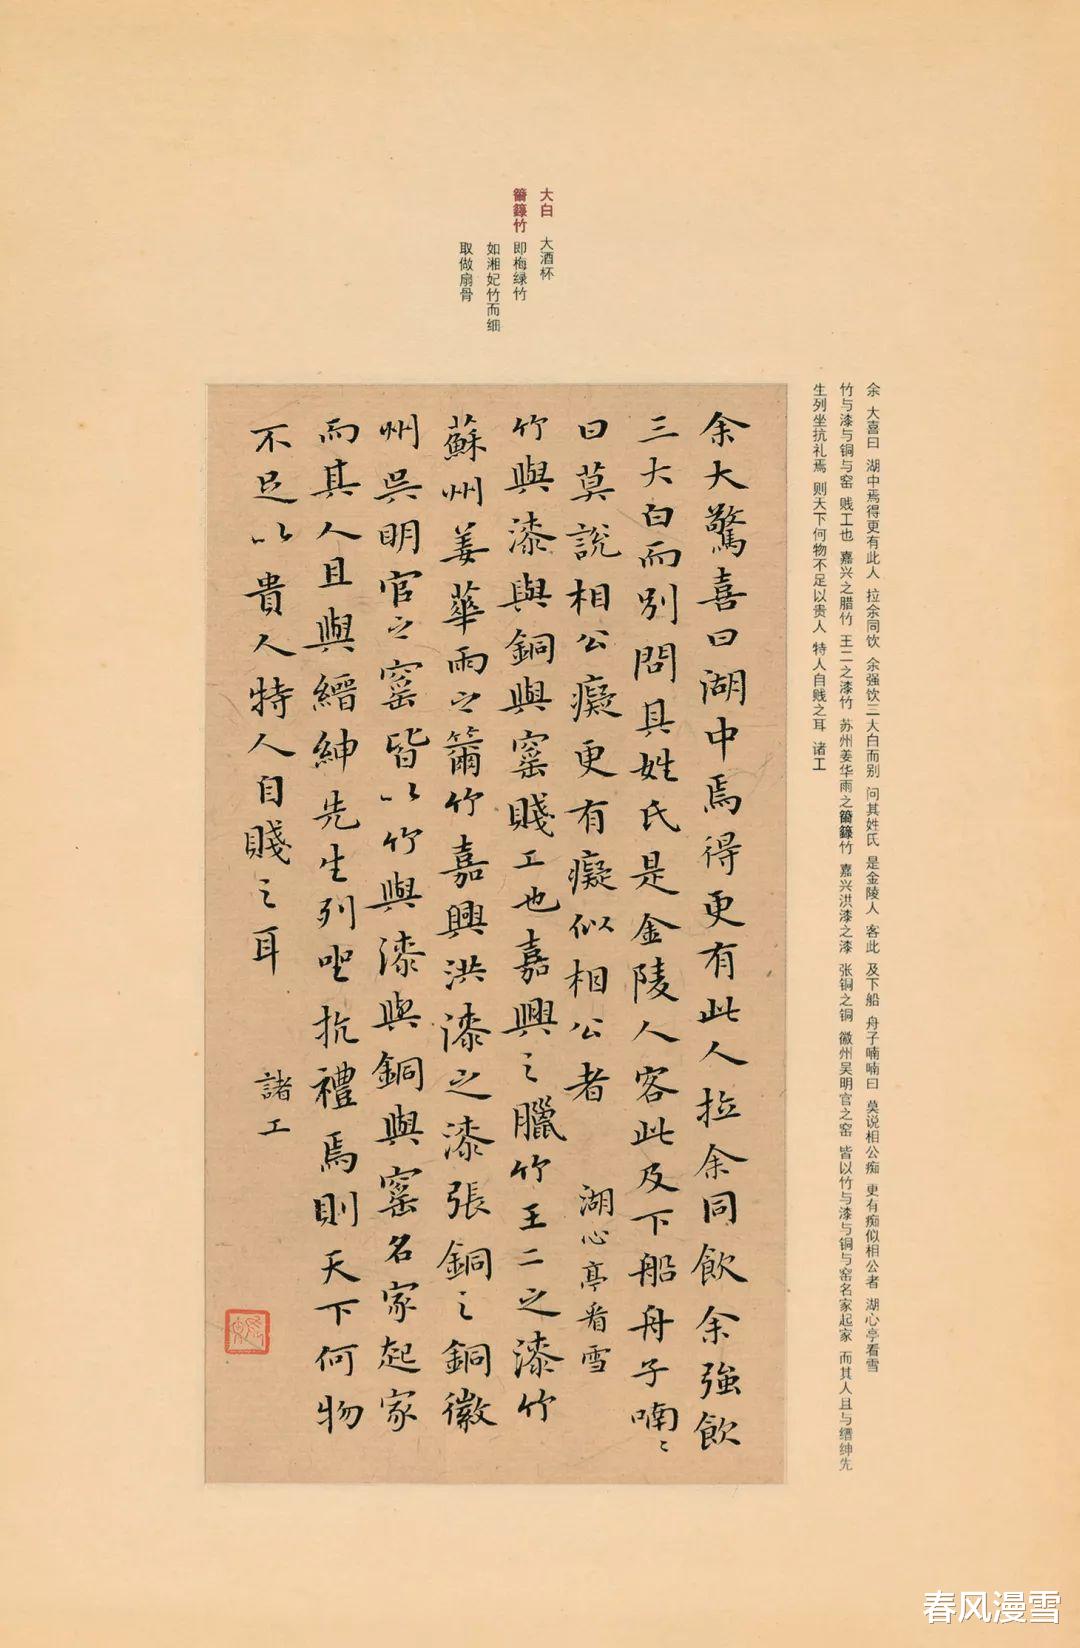 大白 大酒杯
籋籙竹 即梅绿竹
如湘妃竹而细
取做扇骨
余 大喜曰 湖中焉得更有此人 拉余同饮 余强饮三大白而别 问其姓氏 是金陵人 客此 及下船 舟子喃喃曰 莫说相公痴 更有痴似相公者 湖心亭看雪
竹与漆与铜与窑 贱工也 嘉兴之腊竹 王二之漆竹 苏州姜华雨之籋籙竹 嘉兴洪漆之漆 张铜之铜 徽州吴明官之窑 皆以竹与漆与铜与窑名家起家 而其人且与缙绅先
生列坐抗礼焉 则天下何物不足以贵人 特人自贱之耳 诸工
余大驚喜曰湖中焉得更有此人拉余同飲余強飲
三大白而別問其姓氏是金陵人客此及下船舟子喃々
曰莫說相公癡更有癡似相公者 湖心亭看雪
竹與漆與銅與窰賤工也嘉興之臘竹王二之漆竹
蘇州姜華雨之籋竹嘉興洪漆之漆張銅之銅徽
州吳明官之窰皆以竹與漆與銅與窰名家起家
而其人且與縉紳先生列坐抗禮焉則天下何物
不足以貴人特人自賤之耳 諸工
春风漫雪